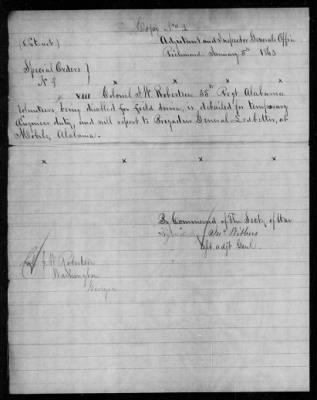 Copy No 1
(Extract)
Adjutant and Inspector Generals Office
Richmond January 5th 1863
Special Orders }
No 3
x x x x
VIII Colonel F. W. Robertson 35th Regt Alabama
volunteers, being disabled for field service, is detailed for temporary
Engineer duty, and will report to Brigadier General Leadbetter, at
Mobile, Alabama.
x x x x
By Command of The Secty of War
Jno. Withers
Asst. adjt Genl
W Robertson
Washington
Georgia